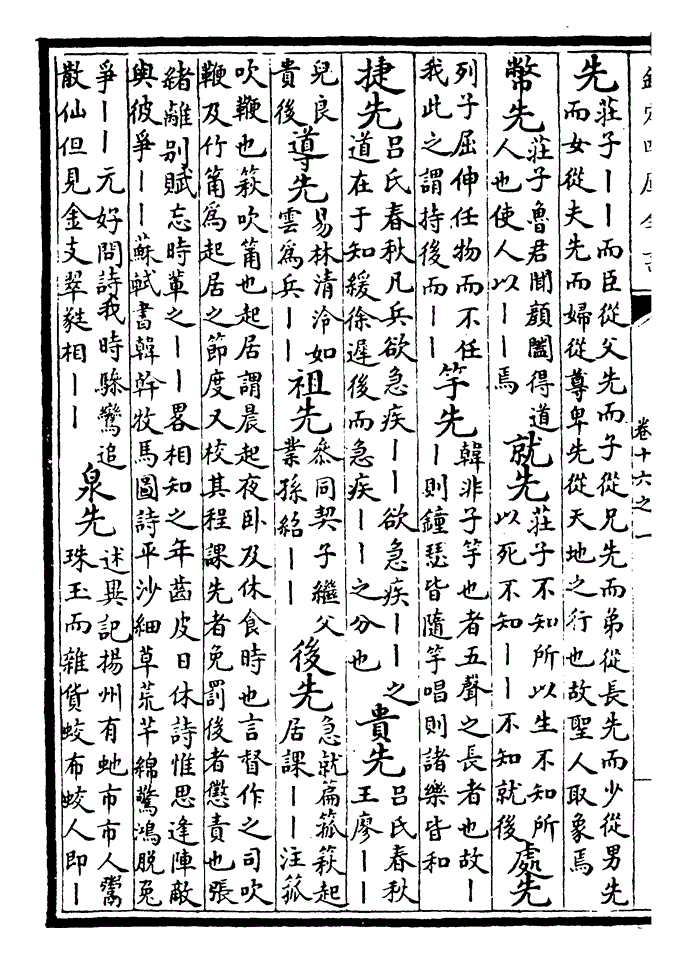 欽定四庫全書
卷十六之一
先
莊子丨丨而臣從父先而子從兄先而弟從長先而少從男先
而女從夫先而婦從尊卑先從天地之行也故聖人取象焉
幣先
莊子魯君聞顔闔得道
人也使人以丨丨焉
就先
莊子不知所以生不知所
以死不知丨丨不知就後
處先
列子屈伸任物而不任
我此之謂持後而丨丨
竽先
韓非子竽也者五聲之長者也故丨
丨則鐘瑟皆隨竽唱則諸樂皆和
捷先
吕氏春秋凡兵欲急疾丨丨欲急疾丨丨之
道在于知緩徐遲後而急疾丨丨之分也
貴先
吕氏春秋
王廖丨丨
兒良
貴後
導先
易林清泠如
雲為兵丨丨
祖先
叅同契子繼父
業孫紹丨丨
後先
急就篇箛篍起
居課丨丨注箛
吹鞭也篍吹筩也起居謂晨起夜卧及休食時也言督作之司吹
鞭及竹筩為起居之節度又校其程課先者免罰後者懲責也張
緒離别賦忘時輩之丨丨畧相知之年齒皮日休詩惟思逢陣敵
與彼爭丨丨蘇軾書韓幹牧馬圖詩平沙細草荒芊綿驚鴻脱兔
爭丨丨元好問詩我時驂鸞追
散仙但見金支翠蕤相丨丨
泉先
述異記揚州有虵市市人鬻
珠玉而雜貨蛟布蛟人即丨